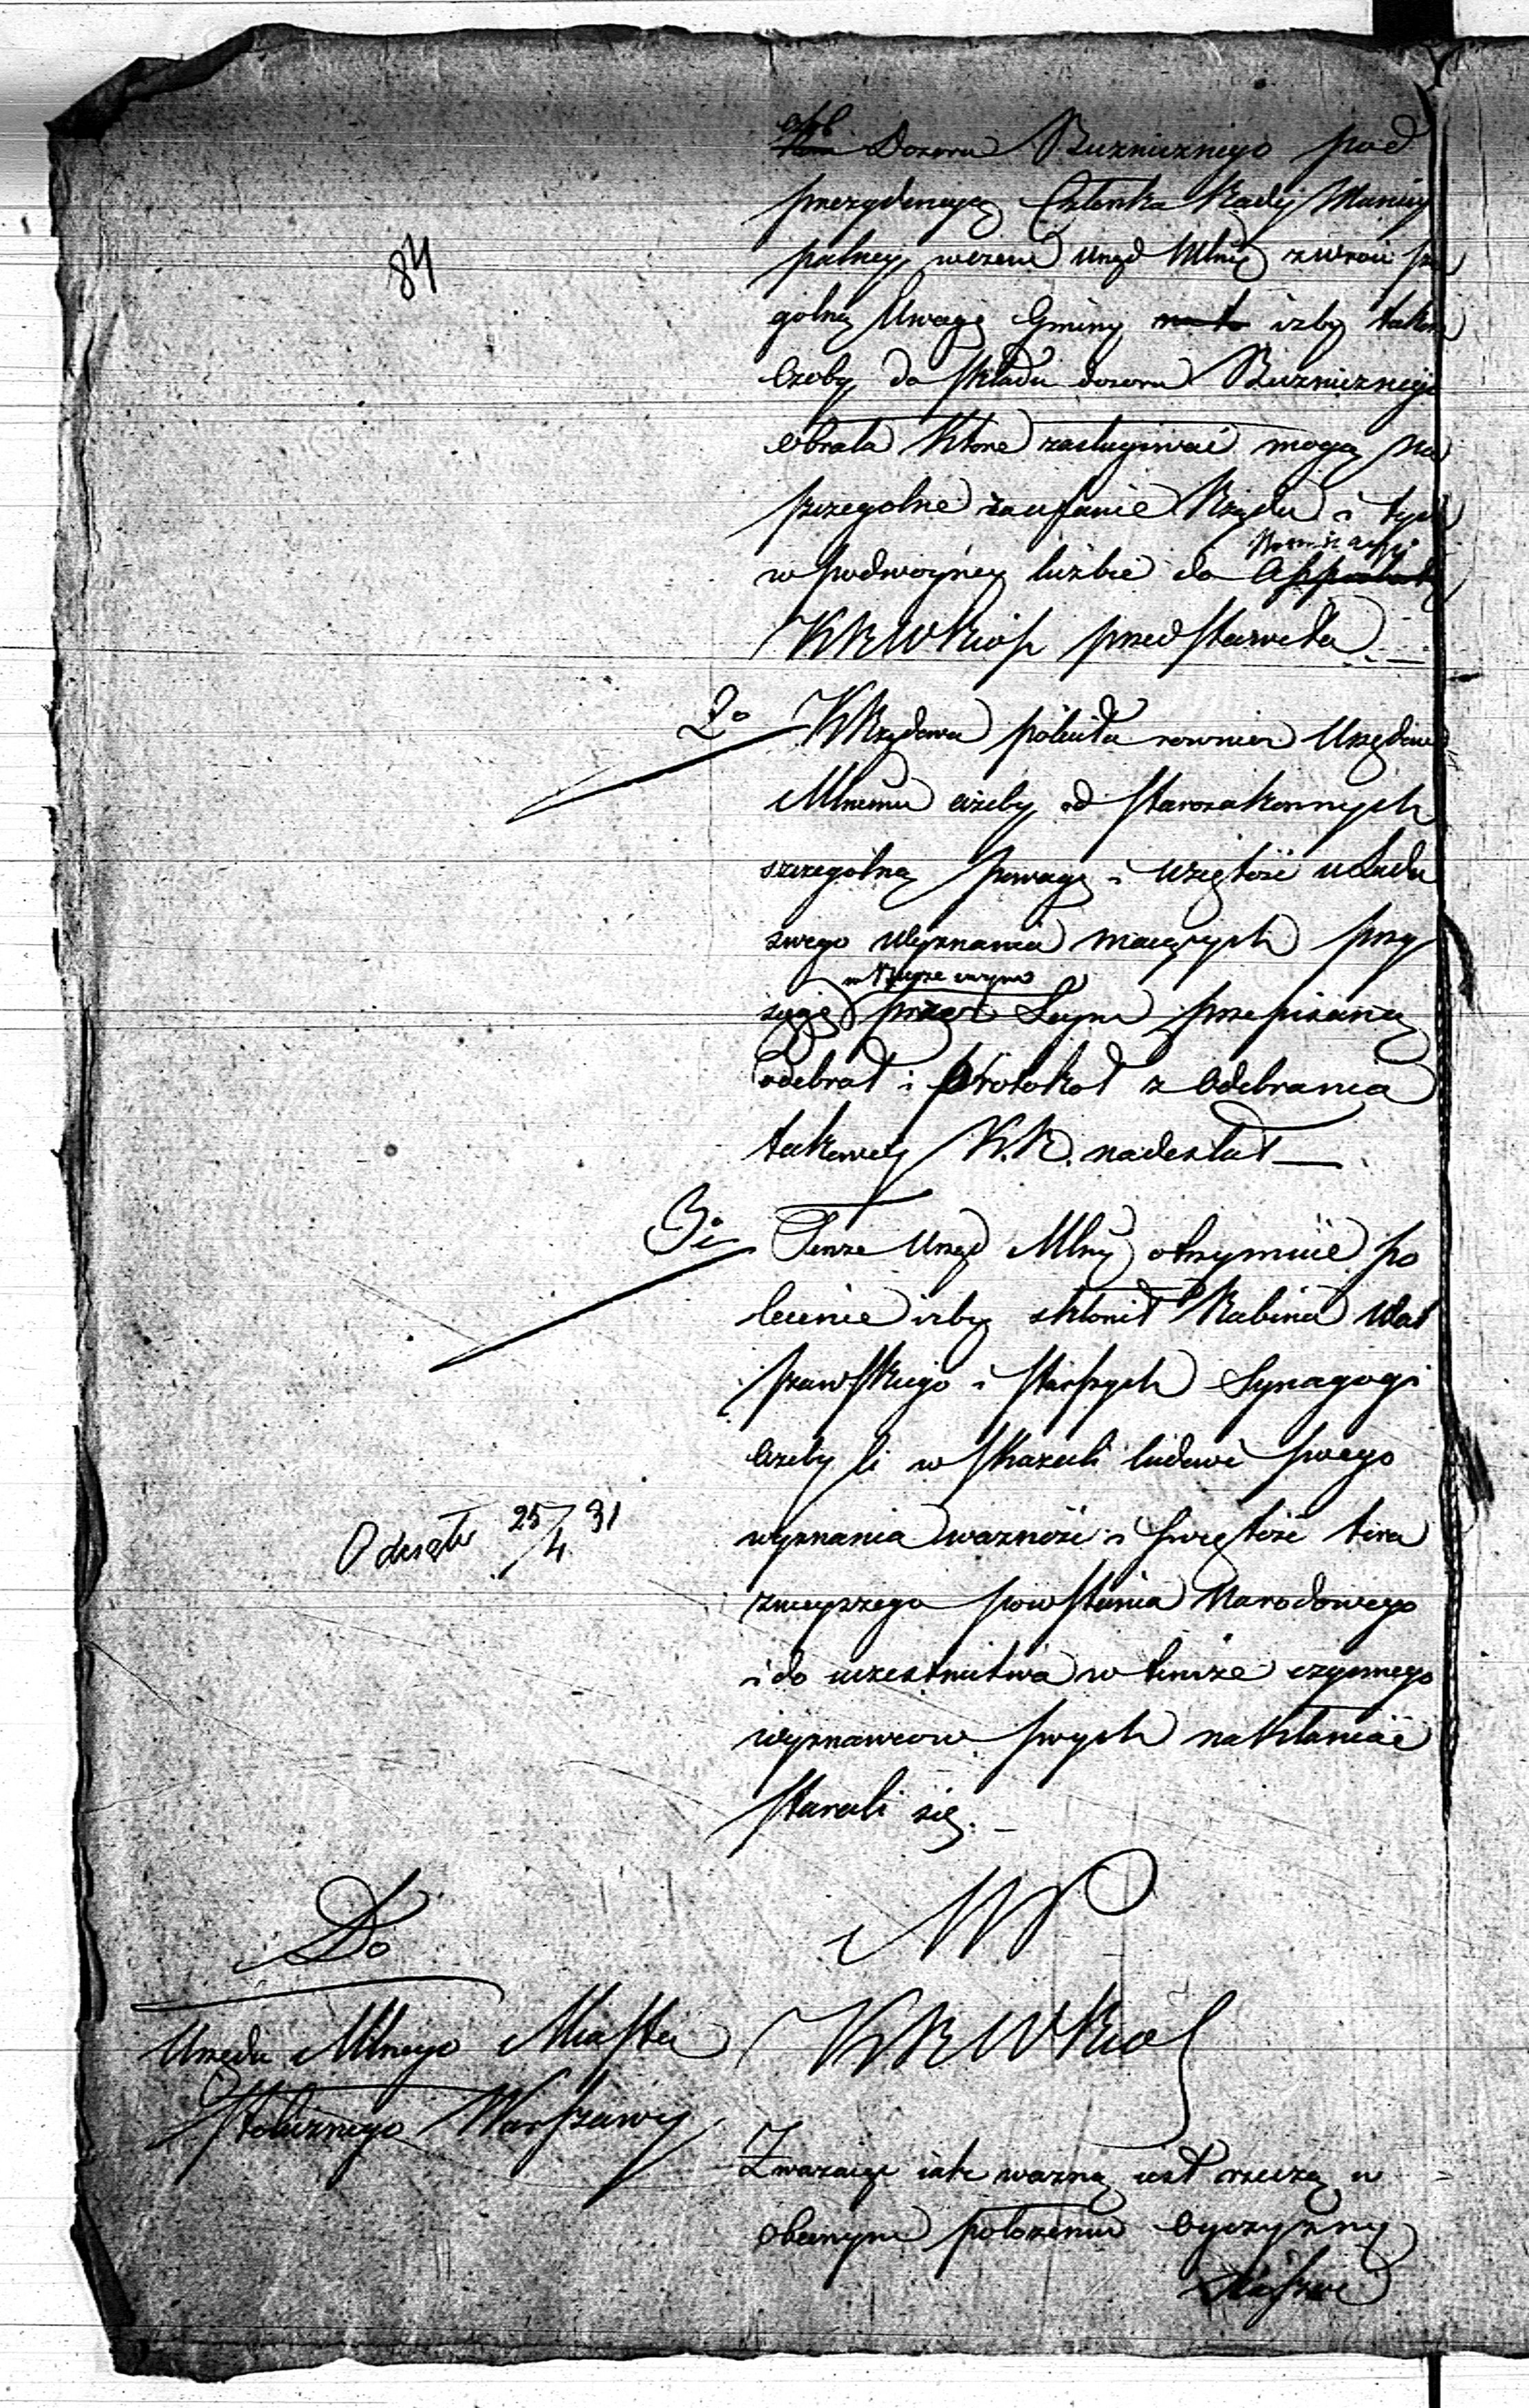 osób
Dozoru Buznicznego pod
prezydencyą Członka Rady Municy
palney, wezwie Urząd Mlny zwróci szcze
gólną Uwagę Gminy na to izby takie
Osoby do składu dozoru Buznicznego
obrała które zasługiwać mogą na
szczegolne zaufanie Rządu i tych
Nominacyi
w podwoyney liczbie do Approbaty
KRWRiOP przedstawiła. —
84
2o KRządowa poleciła rownież Urzędowi
Mlnemu ażeby od starozakonnych
szczegolną powagę i wziętość u Ludu
swego wyznania maiących przy
sięgę przez Seym przepisaną
odebrał i Protokoł z odebrania
takowey K.R. nadesłał —
3o Tenże Urząd Mlny otrzymuie po
lecenie izby skłonił Rabina War
szawskiego i starszych Synagogi
ażeby ci wskazali ludowi swego
wyznania ważność i świętość tera
znieyszego powstania Narodowego
i do uczestnictwa w temże czynnego
wyznawcow swych nakłaniać
starali się. —
Odesłło 25/4 31
Do
Urzędu Mlnego Miasta
Stołecznego Warszawy
MP
KRWRiO
Zważaiąc iak ważną iest rzeczą w
obecnym położeniu Oyczyzny